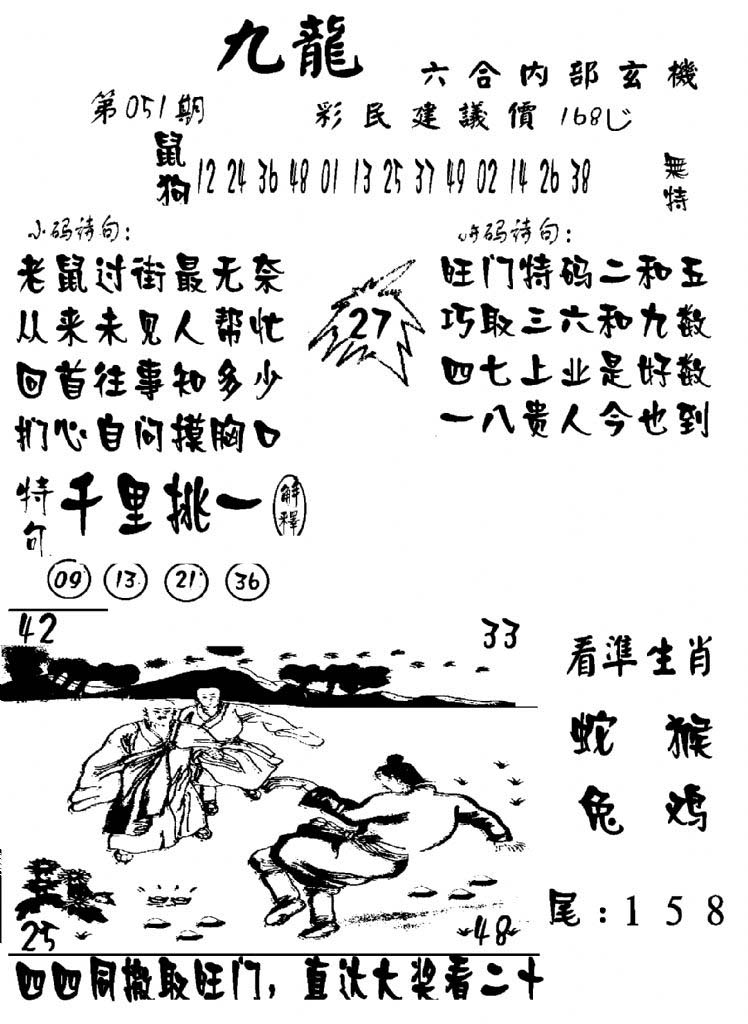 九龍
六合内部玄機
第051期
彩民建議價168
鼠狗
12 24 36 48 01 13 25 37 49 02 14 26 38
無特
小码诗句:
老鼠过街最无奈
从来未见人帮忙
回首往事知多少
扪心自问摸胸口
27
码诗句:
旺门特码二和五
巧取三六和九数
四七上业是好数
一八贵人今也到
特句
千里挑一
解释
09 13 21 36
42
33
看準生肖
蛇 猴
兔 鸡
25
48
尾:1 5 8
四四同撒取旺门,直达大奖看二十